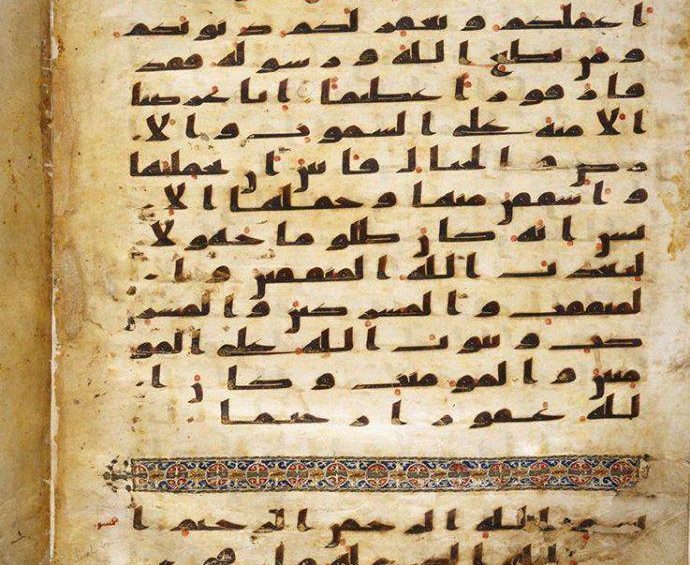 اعملكم و يغفر لكم ذنوبكم
و من يطع الله و رسوله فقد
فاز فوزا عظيما انا عرضنا
الامنة على السموت و الا
رض و الجبال فابين ان يحملنها
و اشفقن منها و حملها الا
نسن انه كان ظلوما جهولا
ليعذب الله المنفقين و ا
لمنفقت و المشركين و المشر
كت و يتوب الله على المو
منين و المومنت و كان ا
لله غفورا رحيما
بسم الله الرحمن الرحيم ا
لله الذى له ما فى